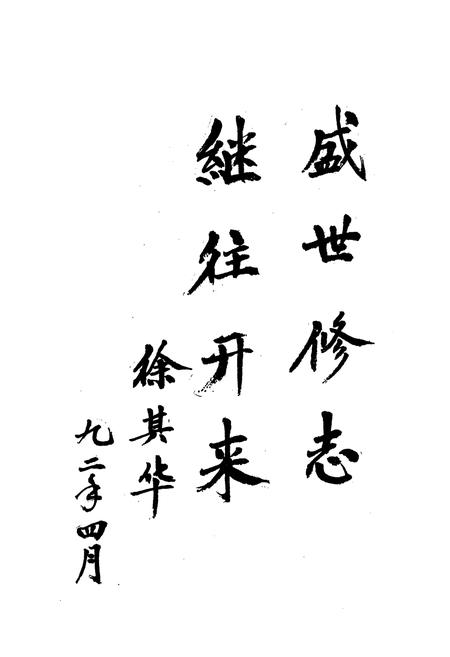 盛世修志
继往开来
徐其华
九二年四月